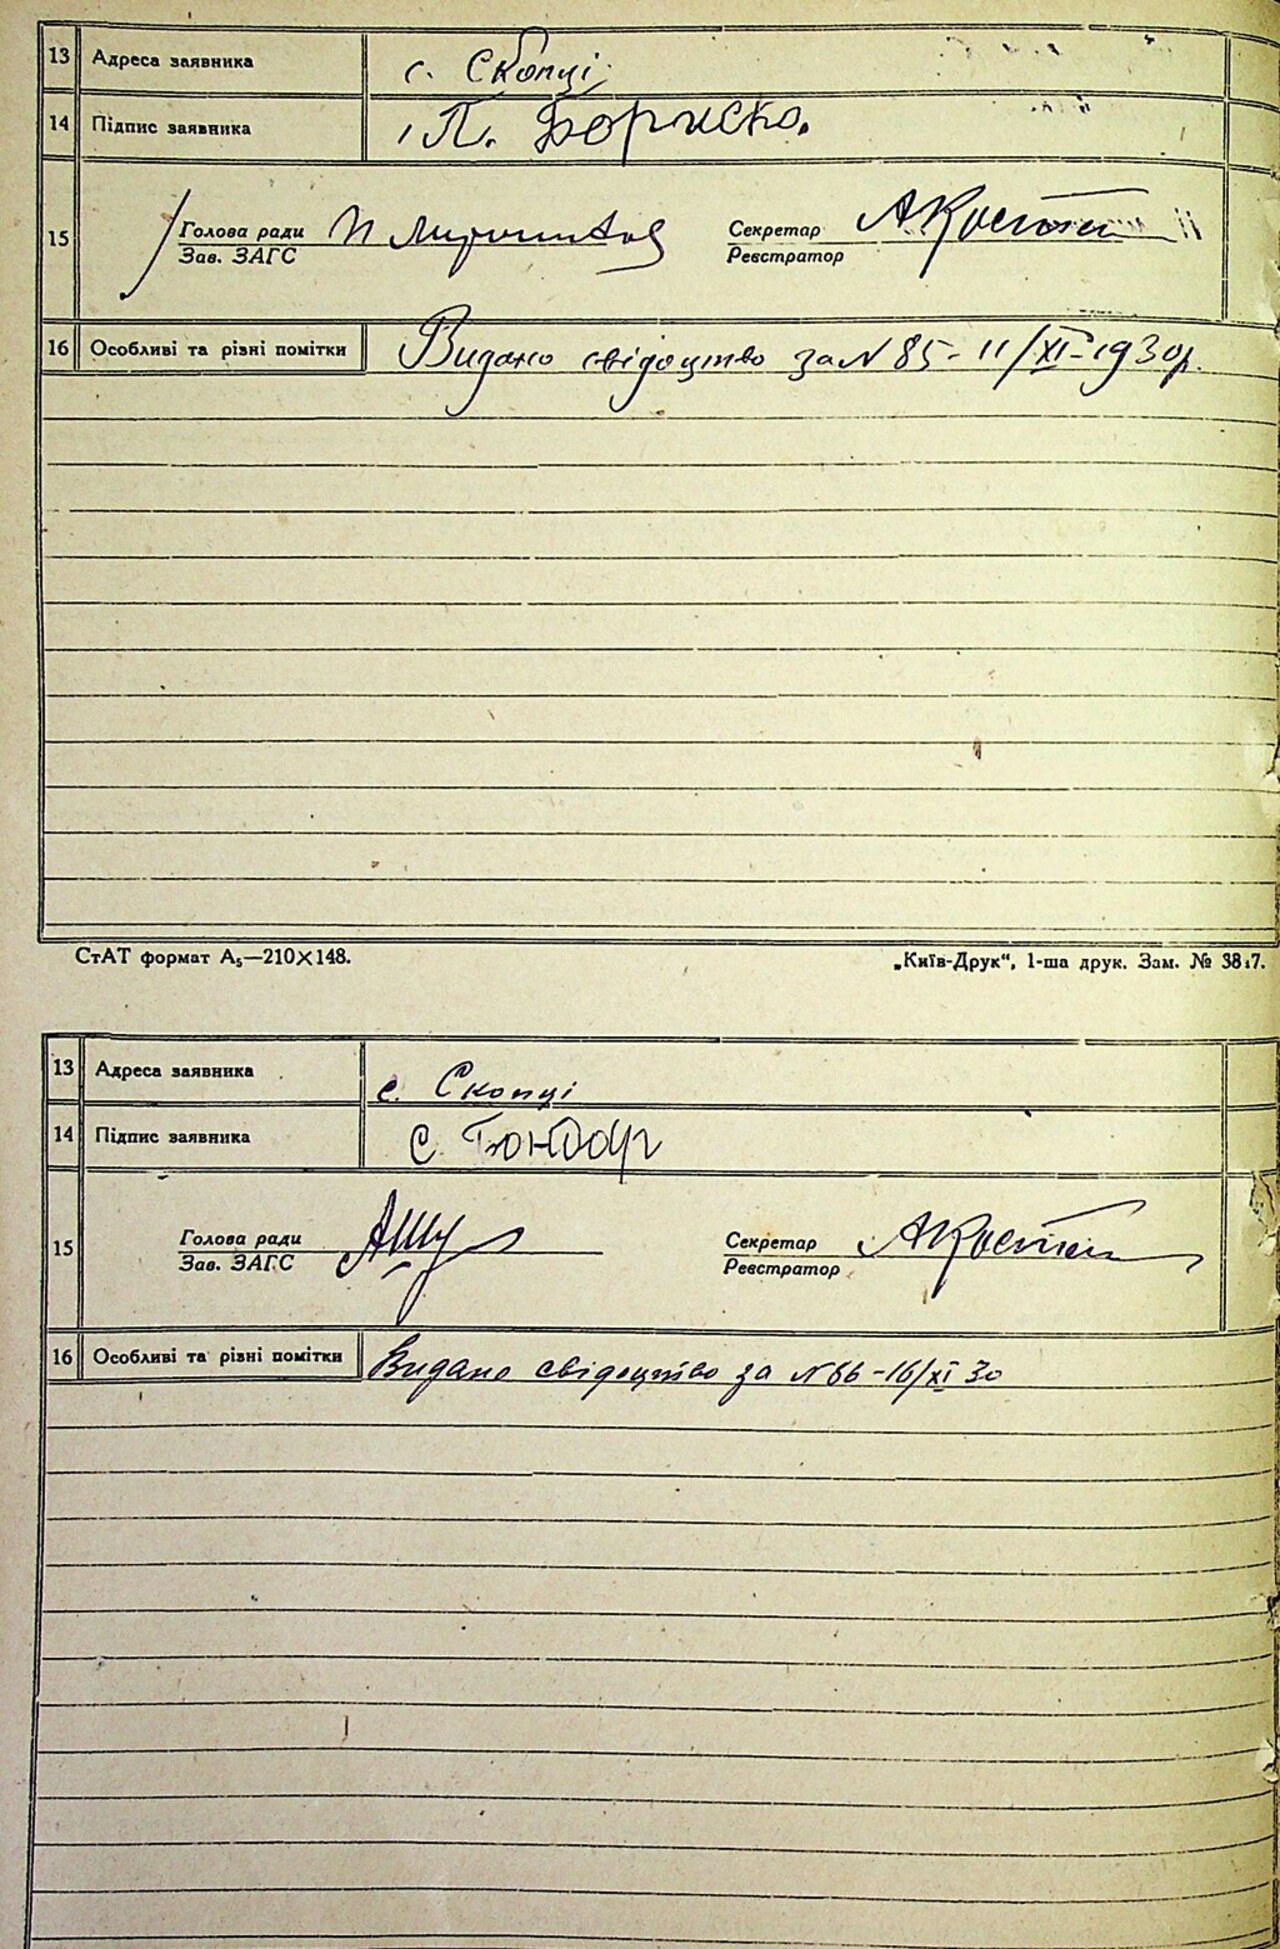 13 Адреса заявника с. Скопці
14 Підпис заявника П. Бориско.
15 Голова ради Секретар
Зав. ЗАГС Реєстратор
16 Особливі та різні помітки Видано свідоцтво за N 85 - 11/XI-1930р.
СтАТ формат А₅—210×148. „Київ-Друк“, 1-ша друк. Зам. №
13 Адреса заявника с. Скопці
14 Підпис заявника С. Бондар
15 Голова ради Секретар
Зав. ЗАГС Реєстратор
16 Особливі та різні помітки Видано свідоцтво за N 86 - 16/XI 30